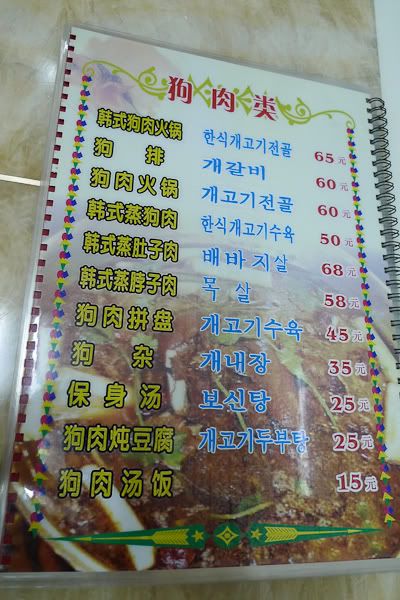 狗肉类
韩式狗肉火锅 한식개고기전골 65元
狗排 개갈비 60元
狗肉火锅 개고기전골 60元
韩式蒸狗肉 한식개고기수육 50元
韩式蒸肚子肉 배바지살 68元
韩式蒸脖子肉 목살 58元
狗肉拼盘 개고기수육 45元
狗杂 개내장 35元
保身汤 보신탕 25元
狗肉炖豆腐 개고기두부탕 25元
狗肉汤饭 15元